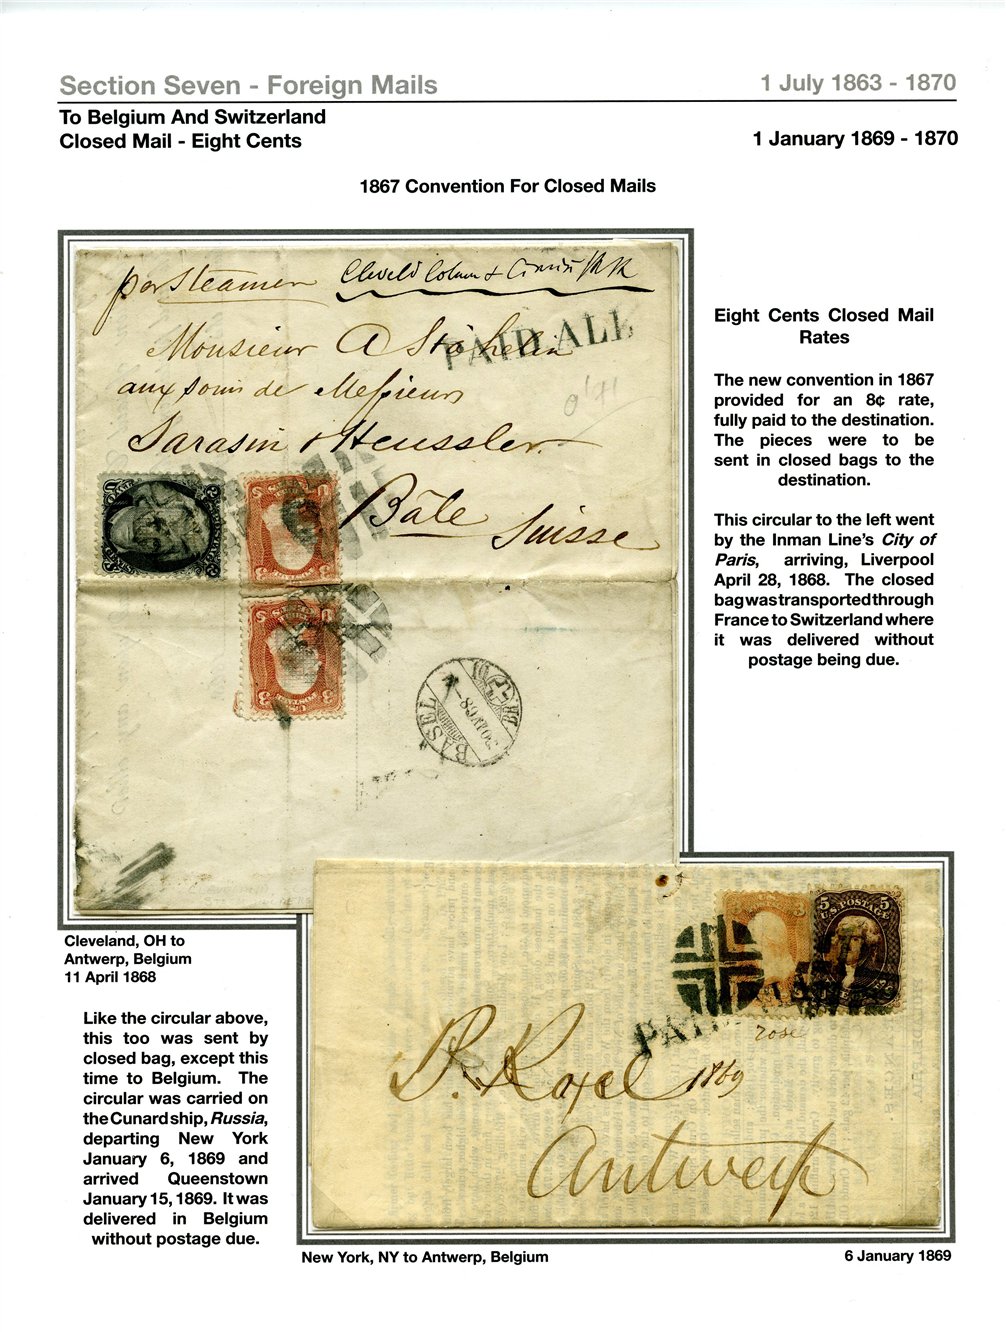 Section Seven - Foreign Mails
1 July 1863 - 1870
To Belgium And Switzerland
Closed Mail - Eight Cents
1 January 1869 - 1870
1867 Convention For Closed Mails
per Steamer
PAID ALL
Monsieur A Stähelin
aux soins de Messieurs
Sarasin & Heussler.
Bâle
Suisse
BASEL
Eight Cents Closed Mail
Rates
The new convention in 1867
provided for an 8¢ rate,
fully paid to the destination.
The pieces were to be
sent in closed bags to the
destination.
This circular to the left went
by the Inman Line's City of
Paris, arriving, Liverpool
April 28, 1868. The closed
bag was transported through
France to Switzerland where
it was delivered without
postage being due.
Cleveland, OH to
Antwerp, Belgium
11 April 1868
Like the circular above,
this too was sent by
closed bag, except this
time to Belgium. The
circular was carried on
the Cunard ship, Russia,
departing New York
January 6, 1869 and
arrived Queenstown
January 15, 1869. It was
delivered in Belgium
without postage due.
5 5
U.S. POSTAGE
PAID
rose
1869
Antwerp
New York, NY to Antwerp, Belgium
6 January 1869